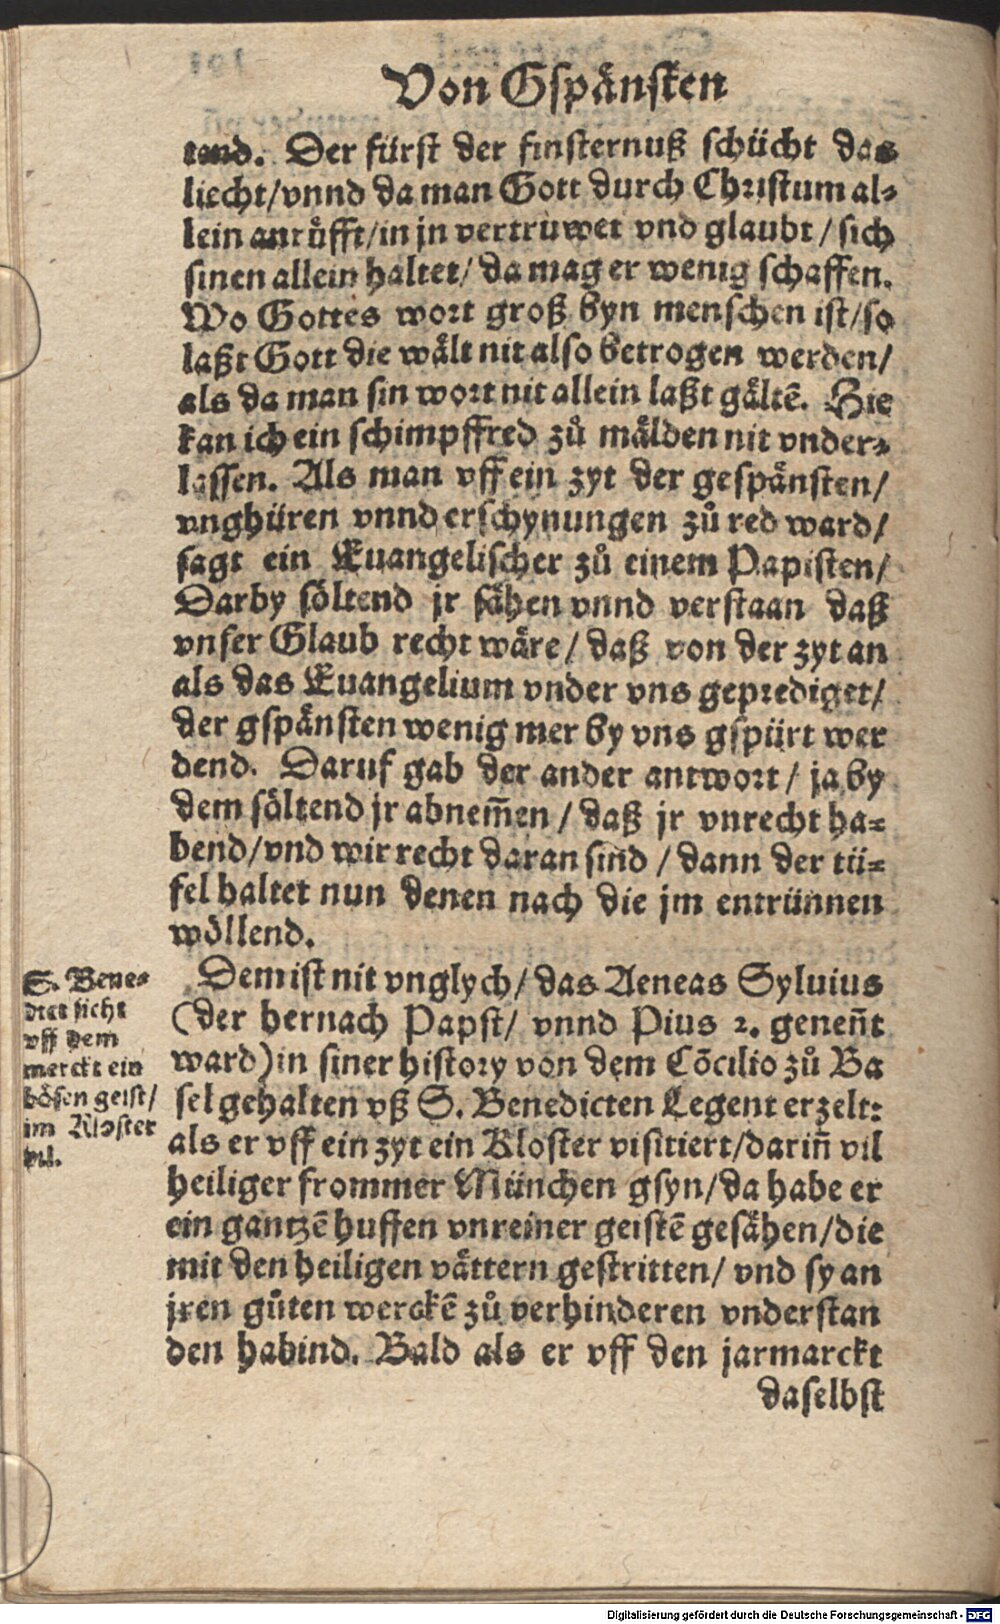 Von Gspånsten
tend. Der fürst der finsternuß schücht das
liecht/vnnd da man Gott durch Christum al⸗
lein anrůfft/in jn vertruwet vnd glaubt/sich
sinen allein haltet/da mag er wenig schaffen.
Wo Gottes wort groß byn menschen ist/so
laßt Gott die wålt nit also betrogen werden/
als da man sin wort nit allein laßt gåltē. Hie
kan ich ein schimpffred zů målden nit vnder⸗
lassen. Als man vff ein zyt der gespånsten/
vnghüren vnnd erschynungen zů red ward/
sagt ein Euangelischer zů einem Papisten/
Darby söltend jr såhen vnnd verstaan daß
vnser Glaub recht wåre/daß von der zyt an
als das Euangelium vnder vns geprediget/
der gspånsten wenig mer by vns gspürt wer
dend. Daruf gab der ander antwort/ja by
dem söltend jr abnem̄en/daß jr vnrecht ha⸗
bend/vnd wir recht daran sind/dann der tü⸗
fel haltet nun denen nach die jm entrünnen
wöllend.
Dem ist nit vnglych/das Aeneas Syluius
(der hernach Papst/vnnd Pius 2. genen̄t
ward) in siner history von dem Cōcilio zů Ba
sel gehalten vß S. Benedicten Legent erzelt:
als er vff ein zyt ein Kloster visitiert/darin̄ vil
heiliger frommer München gsyn/da habe er
ein gantzē huffen vnreiner geistē gesåhen/die
mit den heiligen våttern gestritten/vnd sy an
jren gůten werckē zů verhinderen vnderstan
den habind. Bald als er vff den jarmarckt
daselbst
S. Bene⸗
dict sicht
vff dem
merckt ein
bösen geist/
im Kloster
vil.
Digitalisierung gefördert durch die Deutsche Forschungsgemeinschaft - DFG